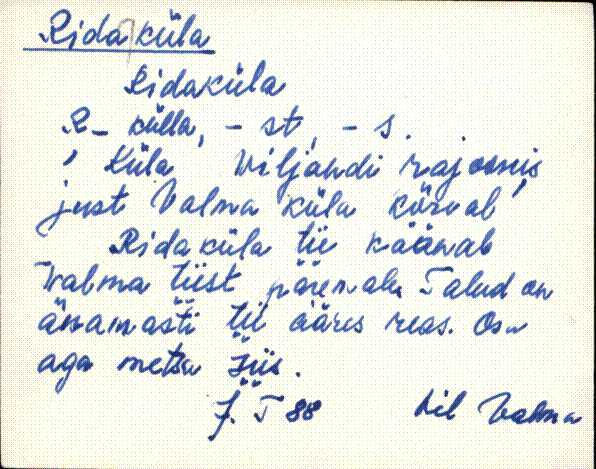 Ridaküla
Ridaküla
R- külla, -st, -s.
Küla Viljandi rajoonis,
just Valma küla kõrval
Ridaküla tii käänab
Valma tiist päremale. Talud on
änamasti tii ääres reas. Osa
aga metsa siis.
J. T 88 Vil Valma